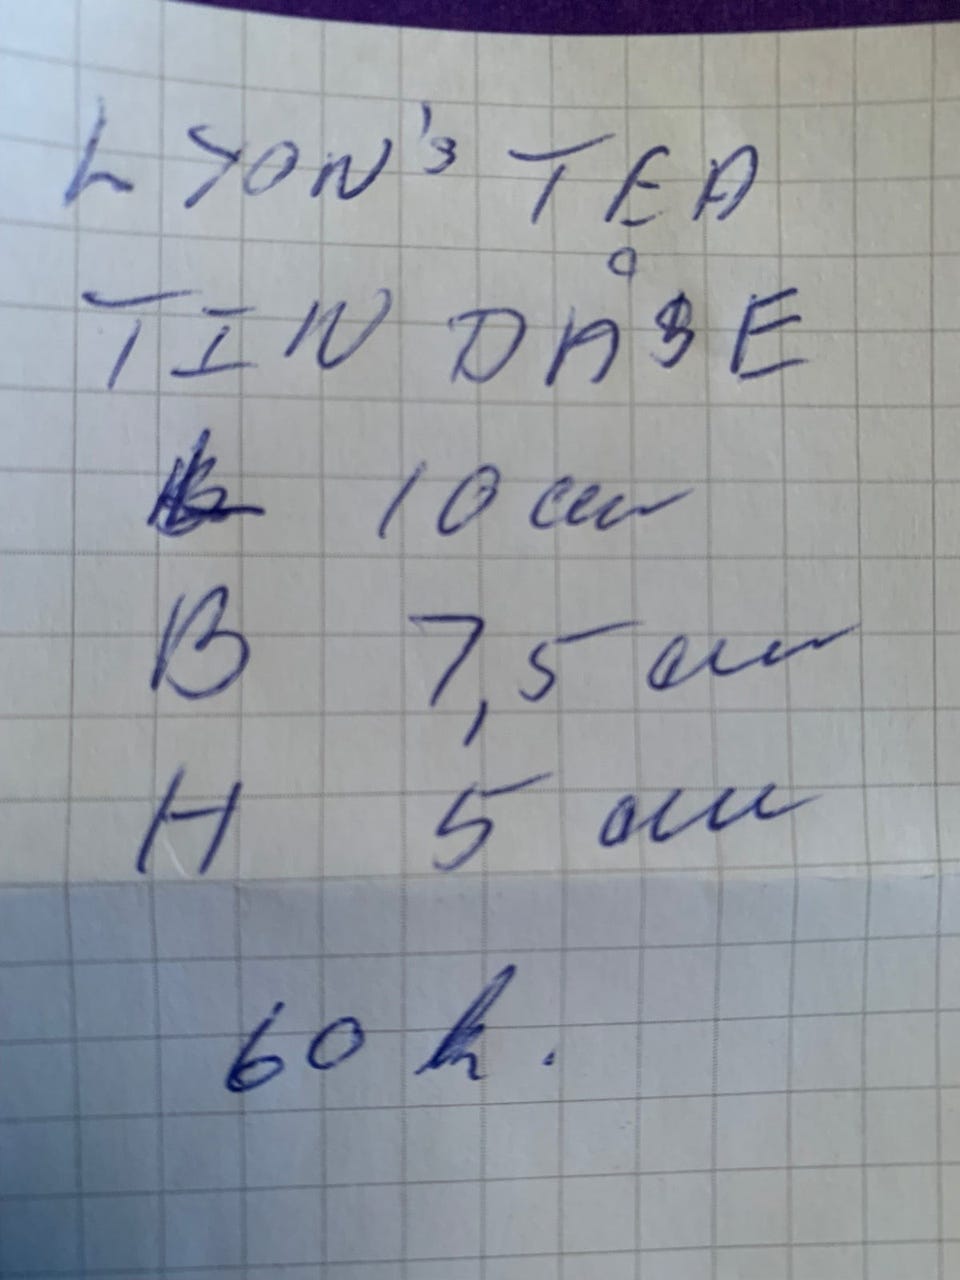 LYON's TEA
TIN DÅSE
L 10 cm
B 7,5 cm
H 5 cm
60 k.